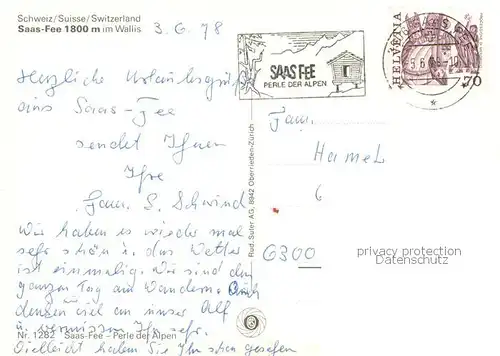 Schweiz/Suisse/Switzerland
Saas-Fee 1800 m im Wallis
3.6.78
Herzliche Urlaubsgrüße
aus Saas-Fee
sendet Ihnen
Ihre
Fam. S. Schwind
Wir haben es wieder mal
sehr schön u. das Wetter
ist einmalig. Wir sind den
ganzen Tag am Wandern.
denken viel an unser Alf
u. vermissen Ihn sehr.
Nr. 1282 Saas-Fee – Perle der Alpen
Vielleicht haben Sie Ihn schon gesehen
Rud. Suter AG, 8942 Oberrieden-Zürich
SAAS FEE
PERLE DER ALPEN
HELVETIA
70
Fam.
Hamel
6
6300
privacy protection
Datenschutz